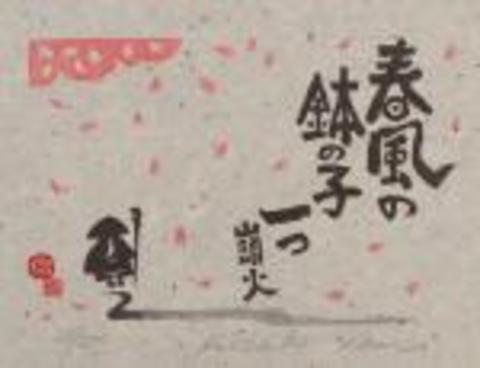 春風の
鉢の子
一つ
山頭火